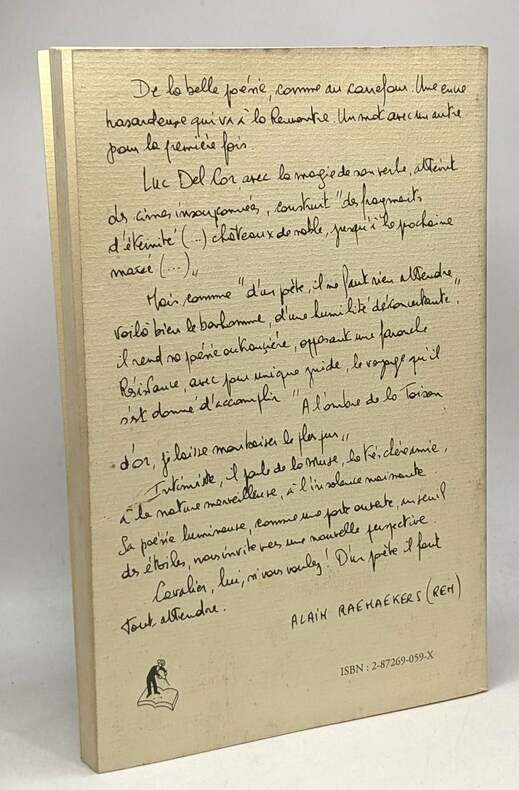 De la belle poésie, comme au carrefour. Une encre
hasardeuse qui va à la Rencontre. Un mot avec un autre
pour la première fois.
Luc Del Cor avec la magie de son verbe, atteint
des cimes insoupçonnées, construit "des fragments
d'éternité (...) châteaux de sable, jusqu'à la prochaine
marée (...)"
Mais comme "d'un poète, il ne faut rien attendre,
voilà bien le bonhomme, d'une humilité déconcertante".
il rend sa poésie outrancière, opposant une farouche
Résistance, avec pour unique guide, le voyage qu'il
s'est donné d'accomplir "A l'ombre de la Toison
d'or, je laisse mon baiser le plus pur"
Intimiste, il parle de la Muse, la très chère amie,
à la nature merveilleuse, à l'insolence naissante.
Sa poésie lumineuse, comme une porte ouverte, un seuil
des étoiles, nous invite vers une nouvelle perspective.
Cavalier, lui, si vous voulez! D'un poète il faut
tout attendre.
ALAIN RAEMAEKERS (REM)
ISBN : 2-87269-059-X